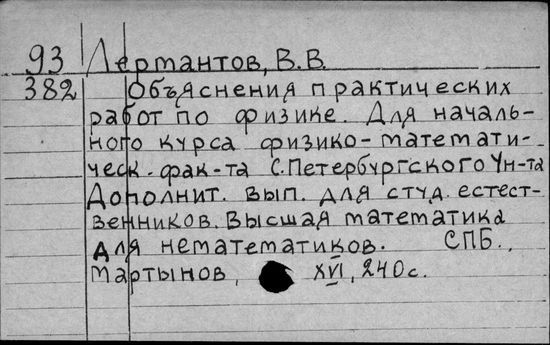 93 Лермантов, В.В.
382 Объяснения практических
работ по физике. Для началь-
ного курса физико-математи-
ческ. фак-та С.Петербургского Ун-та
Дополнит. вып. для студ. естест-
венников. Высшая математика
для нематематиков. СПБ.,
Мартынов, XVI, 240с.